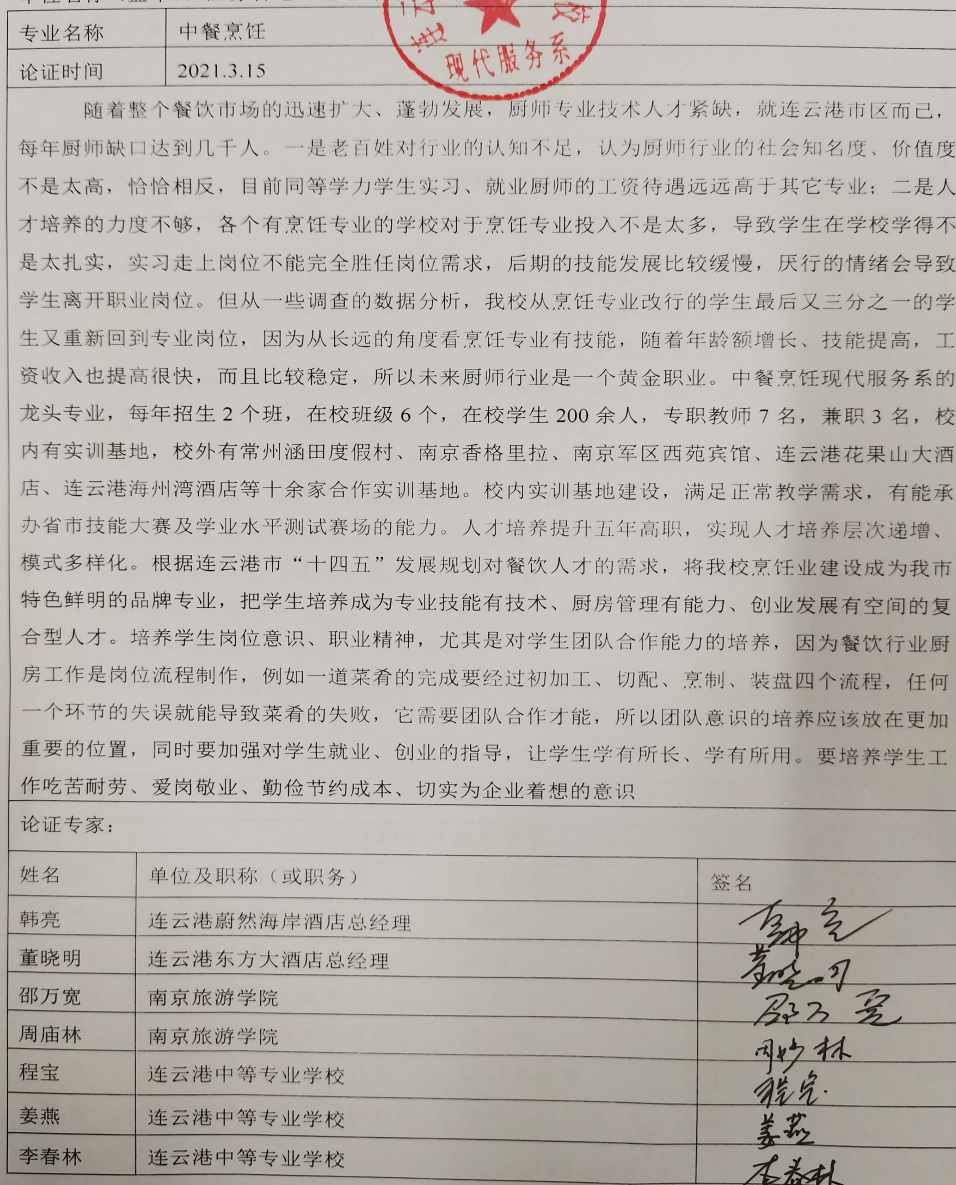 专业名称 中餐烹饪
论证时间 2021.3.15
现代服务系
随着整个餐饮市场的迅速扩大、蓬勃发展，厨师专业技术人才紧缺，就连云港市区而已，
每年厨师缺口达到几千人。一是老百姓对行业的认知不足，认为厨师行业的社会知名度、价值度
不是太高，恰恰相反，目前同等学力学生实习、就业厨师的工资待遇远远高于其它专业；二是人
才培养的力度不够，各个有烹饪专业的学校对于烹饪专业投入不是太多，导致学生在学校学得不
是太扎实，实习走上岗位不能完全胜任岗位需求，后期的技能发展比较缓慢，厌行的情绪会导致
学生离开职业岗位。但从一些调查的数据分析，我校从烹饪专业改行的学生最后又三分之一的学
生又重新回到专业岗位，因为从长远的角度看烹饪专业有技能，随着年龄额增长、技能提高，工
资收入也提高很快，而且比较稳定，所以未来厨师行业是一个黄金职业。中餐烹饪现代服务系的
龙头专业，每年招生2个班，在校班级6个，在校学生200余人，专职教师7名，兼职3名，校
内有实训基地，校外有常州涵田度假村、南京香格里拉、南京军区西苑宾馆、连云港花果山大酒
店、连云港海州湾酒店等十余家合作实训基地。校内实训基地建设，满足正常教学需求，有能承
办省市技能大赛及学业水平测试赛场的能力。人才培养提升五年高职，实现人才培养层次递增、
模式多样化。根据连云港市“十四五”发展规划对餐饮人才的需求，将我校烹饪业建设成为我市
特色鲜明的品牌专业，把学生培养成为专业技能有技术、厨房管理有能力、创业发展有空间的复
合型人才。培养学生岗位意识、职业精神，尤其是对学生团队合作能力的培养，因为餐饮行业厨
房工作是岗位流程制作，例如一道菜肴的完成要经过初加工、切配、烹制、装盘四个流程，任何
一个环节的失误就能导致菜肴的失败，它需要团队合作才能，所以团队意识的培养应该放在更加
重要的位置，同时要加强对学生就业、创业的指导，让学生学有所长、学有所用。要培养学生工
作吃苦耐劳、爱岗敬业、勤俭节约成本、切实为企业着想的意识
论证专家：
姓名 单位及职称（或职务） 签名
韩亮 连云港蔚然海岸酒店总经理 韩亮
董晓明 连云港东方大酒店总经理 董晓明
邵万宽 南京旅游学院 邵万宽
周庙林 南京旅游学院 周妙林
程宝 连云港中等专业学校 程宝
姜燕 连云港中等专业学校 姜燕
李春林 连云港中等专业学校 李春林